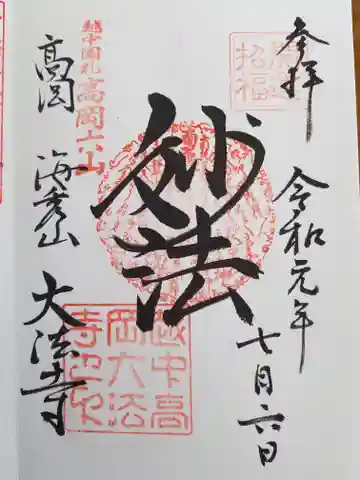 奉拝
令和元年
七月六日
妙法
越中国礼
高岡六山
高岡 海秀山 大法寺
越中高
岡大法
寺也印
招福